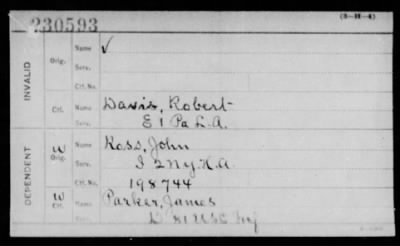 (3-H-4)
230593
INVALID Orig. Name ✓
Serv.
Ctf. No.
Ctf. Name Davis, Robert
Serv. E 1 Pa L.A.
DEPENDENT W Orig. Name Ross, John
Serv. I 2 N.Y. H.A.
Ctf. No. 198744
W Ctf. Name Parker, James
Serv. D 81 U.S.C. Inf